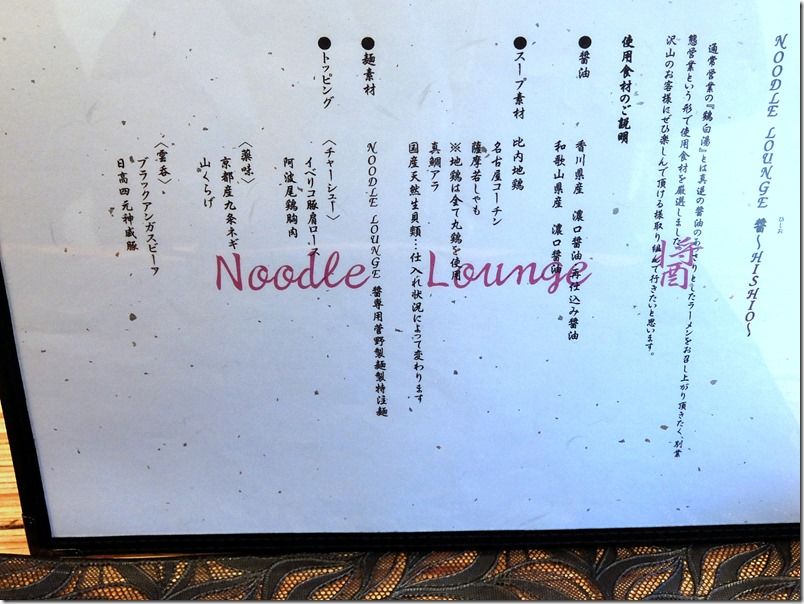 NOODLE LOUNGE 醤〜HISHIO〜
ひしお
通常営業の『鶏白湯』とは真逆の醤油の
りとしたラーメンをお召し上がり頂きたく、別業
態営業という形で使用食材を厳選しました
沢山のお客様にぜひ楽しんで頂ける様取り組んで行きたいと思います。
使用食材のご説明
●醤油
香川県産 濃口醤油 再仕込み醤油
和歌山県産 濃口醤油
●スープ素材 比内地鶏
名古屋コーチン
薩摩若しゃも
※地鶏は全て丸鶏を使用
真鯛アラ
国産天然生貝類…仕入れ状況によって変わります
●麺素材 NOODLE LOUNGE 醤専用菅野製麺製特注麺
●トッピング 〈チャーシュー〉
イベリコ豚肩ロース
阿波尾鶏胸肉
〈薬味〉
京都産九条ネギ
山くらげ
〈雲呑〉
ブラックアンガスビーフ
日高四元神威豚
Noodle Lounge 醤